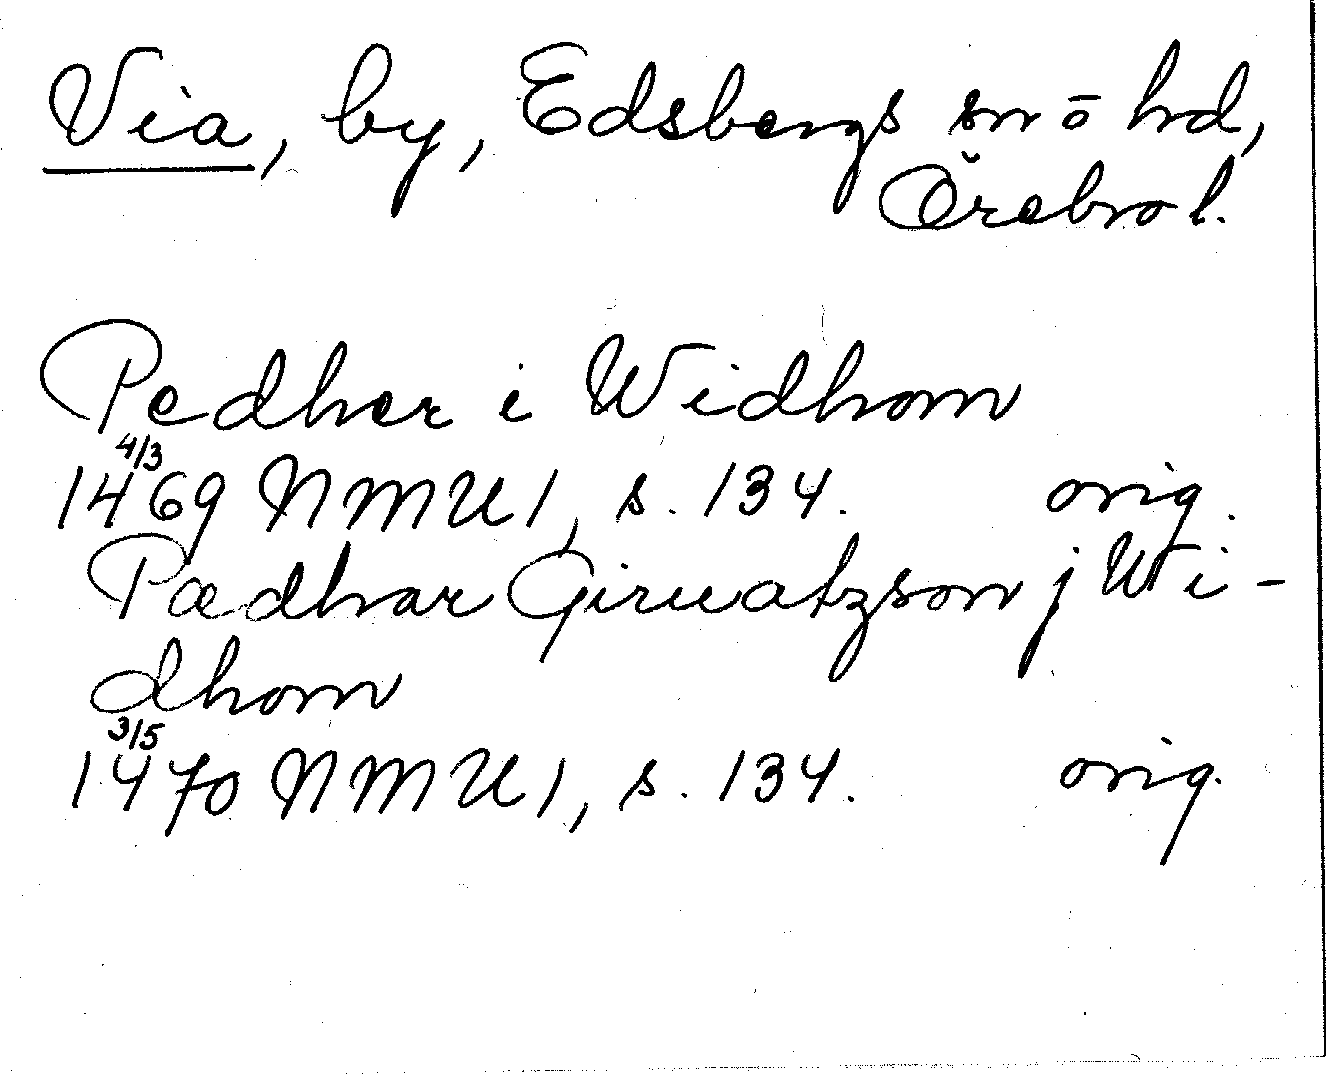 Via, by, Edsbergs sn o hd,
Örebro l.
Pedher i Widhom
14 4/3 69 NMU 1, s. 134. orig.
Pædhar Giruatzson j Wi-
dhom
14 3/5 70 NMU 1, s. 134. orig.